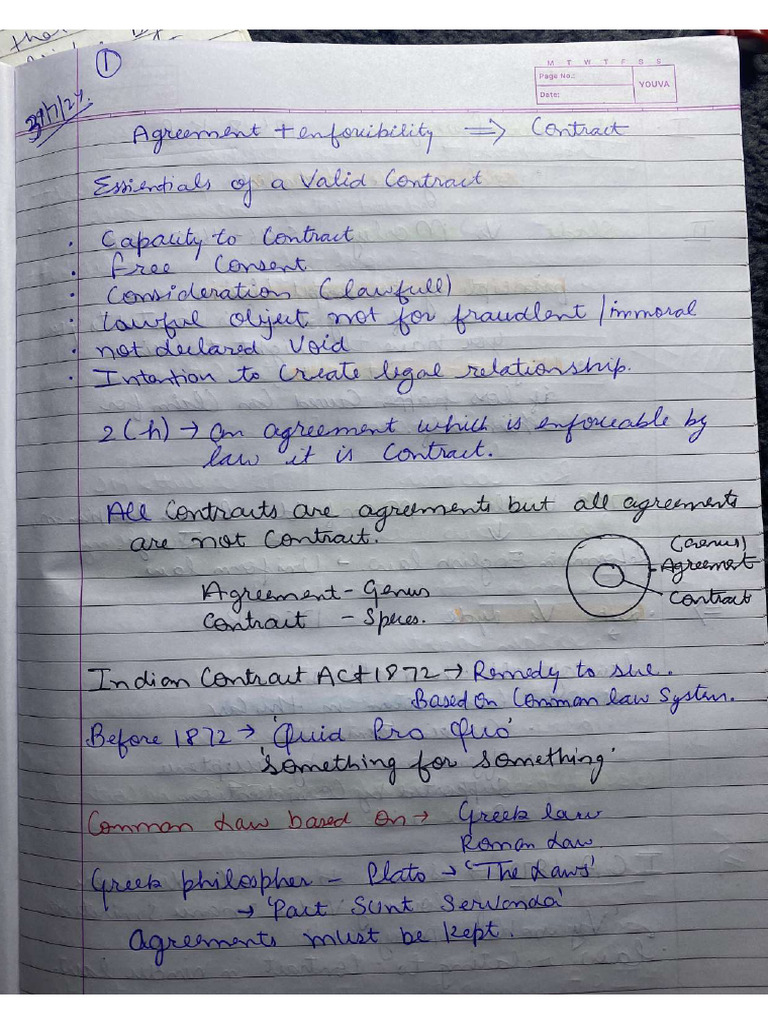 ①
M T W T F S S
Page No.:
Date:
YOUVA
31/7/24.
Agreement + enforcibility ⇒ Contract
Essientials of a Valid Contract
· Capacity to Contract
· free Consent
· Consideration (lawfull)
· lawful object not for fraudlent / immoral
· not declared Void
· Intention to Create legal relationship.
2(h) → an agreement which is enforceable by
law it is Contract.
All Contracts are agreements but all agreements
are not Contract.
(Genus)
Agreemet
Contract
Agreement - Genus
Contract - Speces.
Indian Contract Act 1872 → Remedy to sue.
Based on Common law System.
Before 1872 → 'Quid Pro Quo'
'Something for Something'
Common Law based on → Greek law
Roman Law
Greek philospher - Plato → 'The Laws'
→ 'Pact Sunt Servanda'
Agreements must be kept.